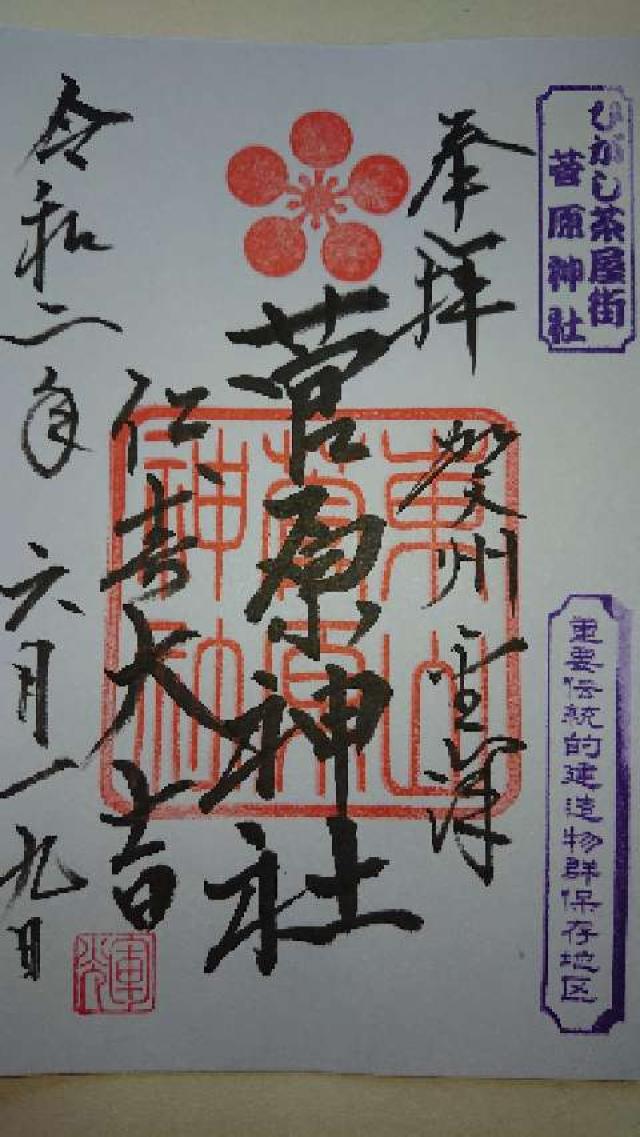 ひがし茶屋街
菅原神社
重要伝統的建造物群保存地区
奉拝
賀州
菅原神社
東山
菅原
神社
大吉
令和二年 六月一九日
輝